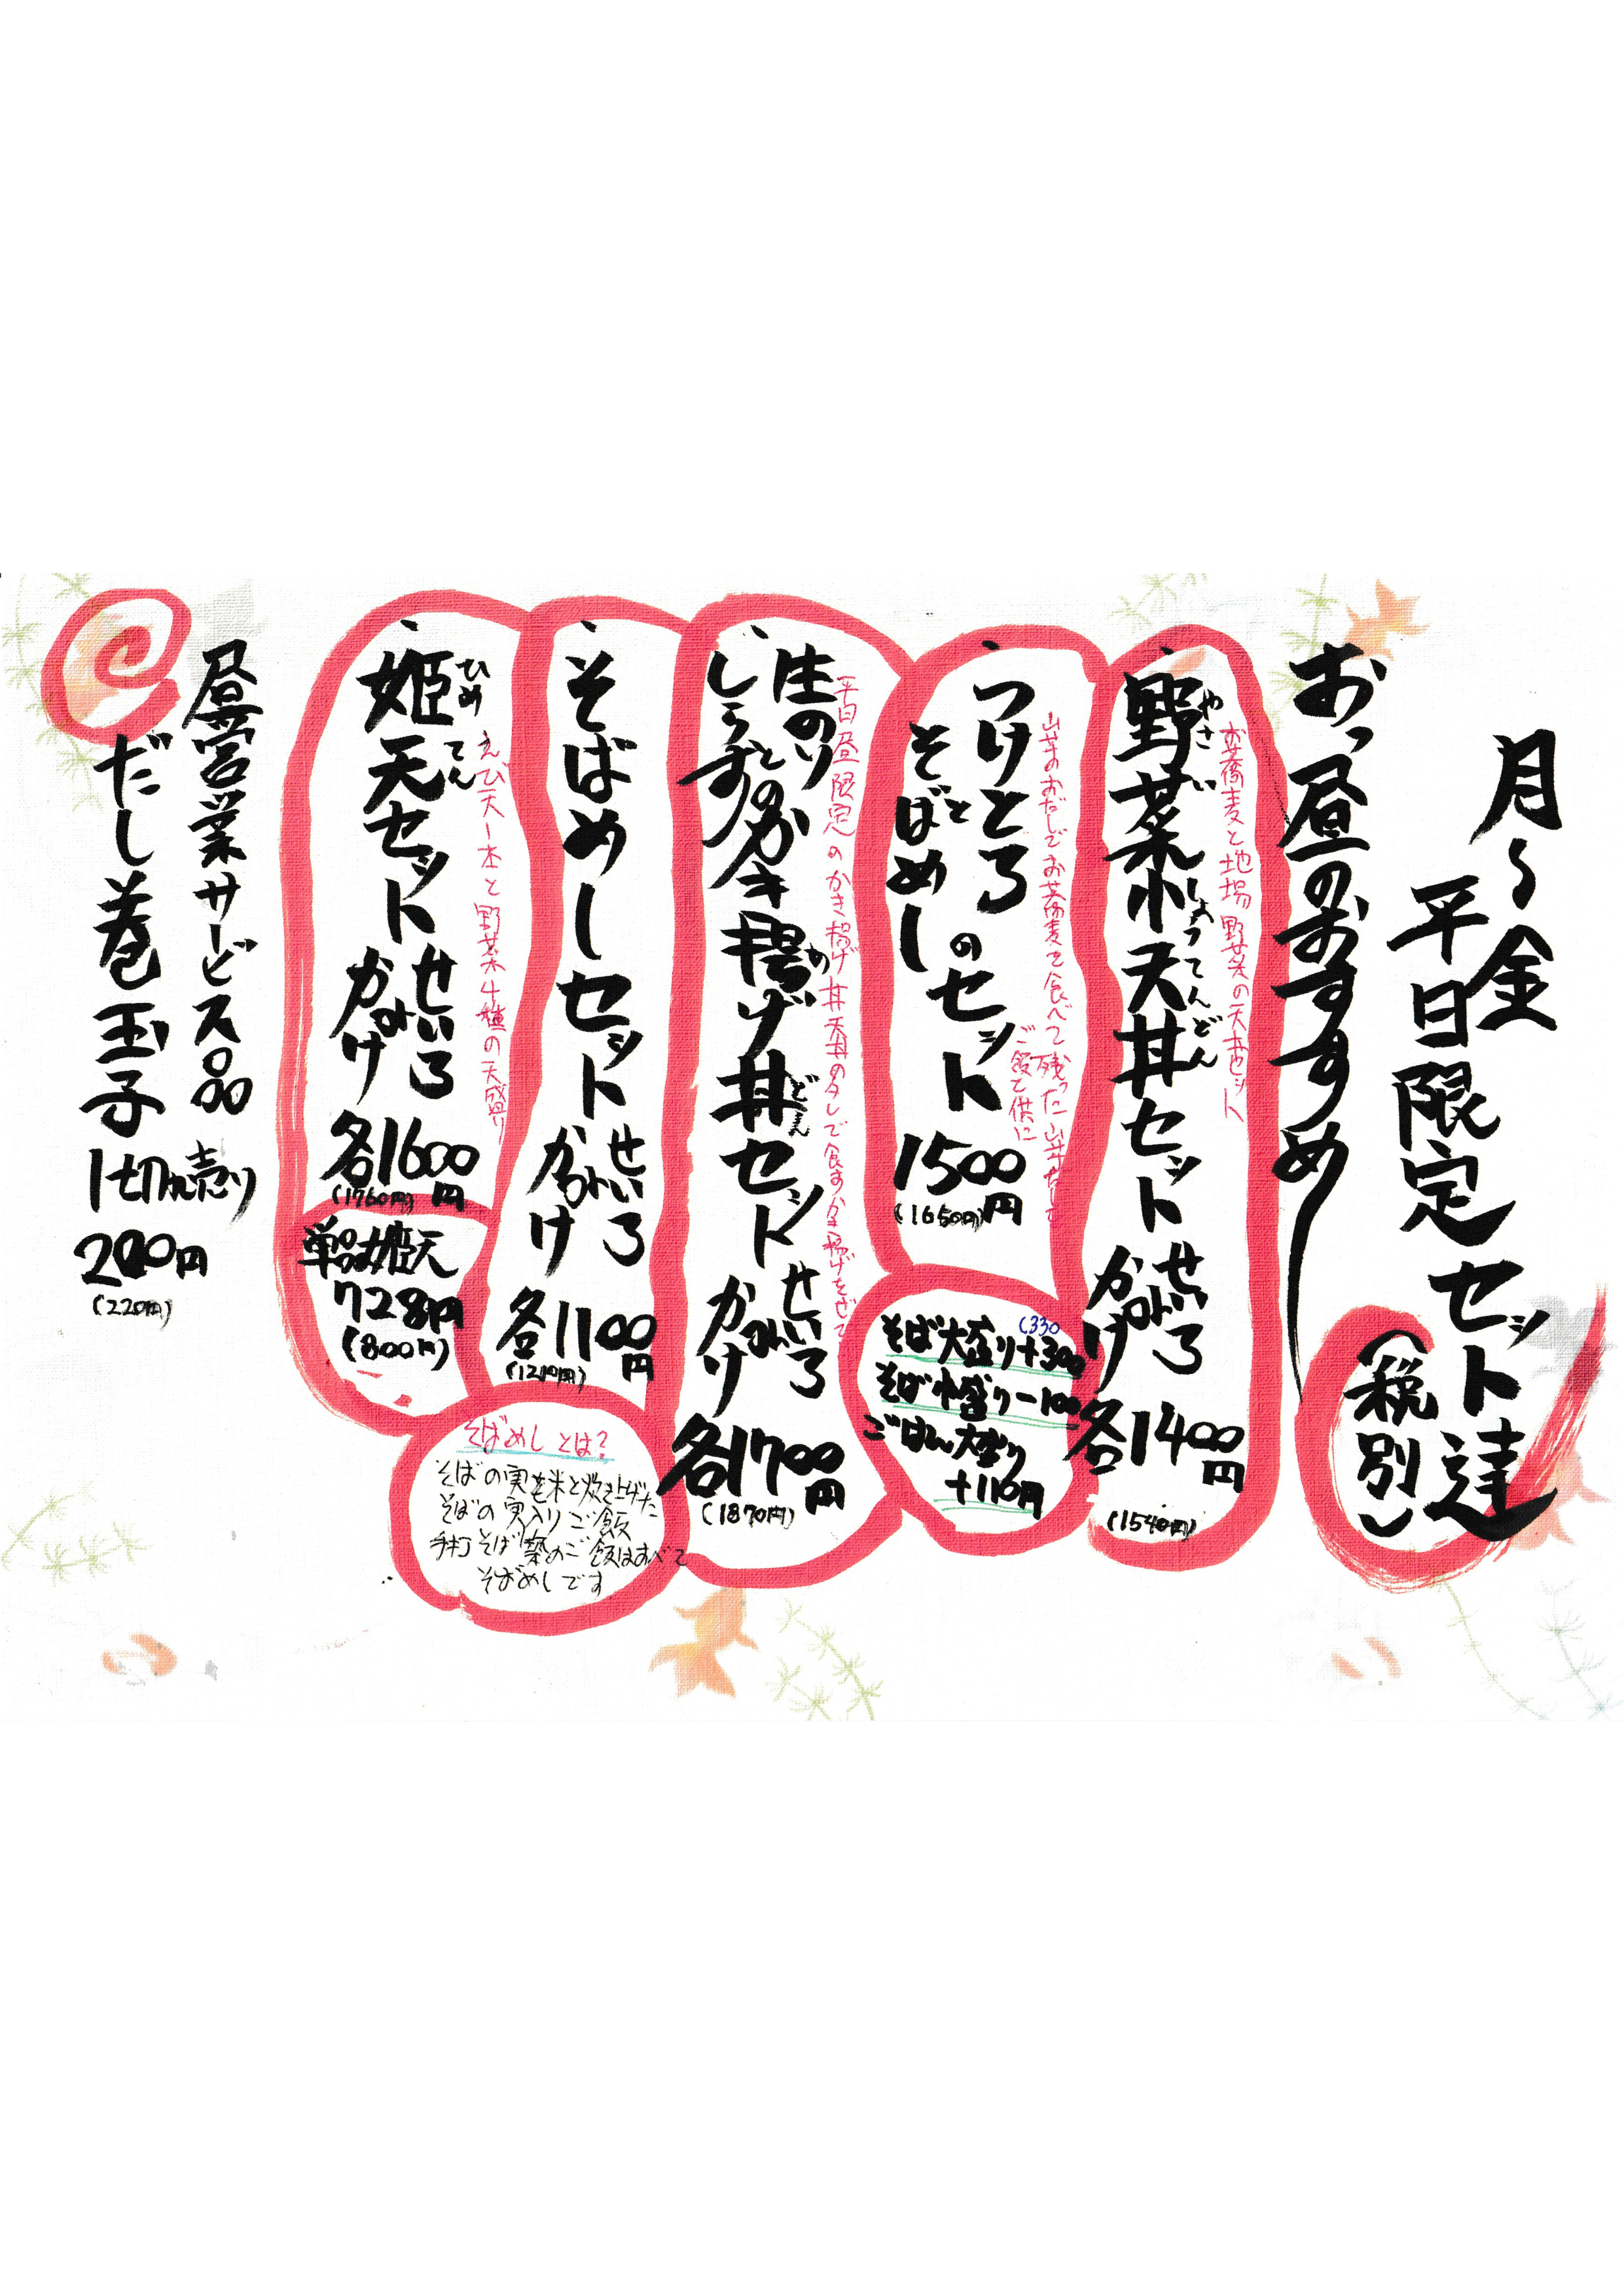 月〜金
平日限定セット達
（税別）
おっ昼のおすすめ
お蕎麦と地場野菜の天丼セット
野菜小天丼セット
やさい
しょうてんどん
せいろ
かけ
各1400円
(1540円)
山芋のおだしでお蕎麦を食べて残った山芋だしで
ご飯と供に
つけとろ
と
そばめしのセット
1500円
(1650円)
そば大盛り+300
(330
そば中盛り-100
ごはん大盛り
+110円
平日昼限定のかき揚げ丼天丼のタレで食すかき揚げをぜひ
生のり
と
しらす
のかき揚げ丼セット
どん
せいろ
かけ
各1700円
(1870円)
そばめしセット
せいろ
かけ
各1100円
(1210円)
そばめしとは？
そばの実を米と炊き上げた
そばの実入りご飯
手打そば築のご飯はすべて
そばめしです
えび天一本と野菜4種の天盛り
姫天セット
ひめてん
せいろ
かけ
各1600円
(1760円)
単品姫天
728円
(800円)
昼営業サービス品
だし巻玉子
1切れ売り
200円
(220円)